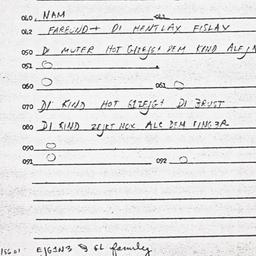 060. NAM 061.
062 FAREUND+ DI HENTLAX FISLAX
050 DI MUTER HOT GIZEJGT DEM KIND ALE
051 O
080 O 063 O
070 DI KIND HOT GIZEJGT DI BRUST
080 DI KIND ZEJGT NOX ALE DEM FINGER
090 O
091 O 092 O
EJGENE family